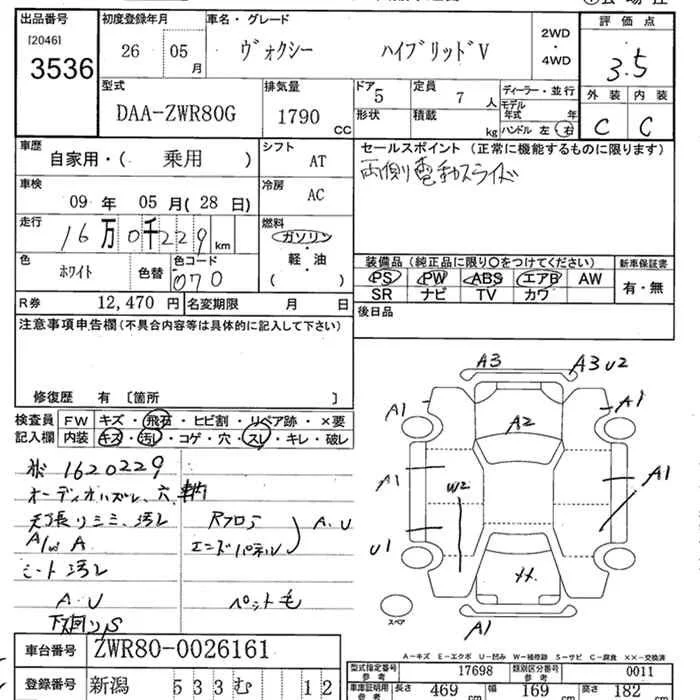 出品番号
[2046]
3536
初度登録年月
26 05月
車名・グレード
ヴォクシー ハイブリッドV
2WD
・
4WD
評価点
3.5
型式
DAA-ZWR80G
排気量
1790 CC
ドア 5
定員 7 人
形状
積載 kg
ディーラー・並行
モデル年式 年
ハンドル 左 右
外装 内装
C C
車歴
自家用・( 乗用 )
シフト
AT
車検
09 年 05 月(28 日)
冷房
AC
セールスポイント(正常に機能するものに限ります)
両側電動スライド
走行
16万0千229km
燃料
ガソリン
・
軽・油
( )
色
ホワイト
色替
色コード
070
装備品(純正品に限り〇をつけてください)
PS PW ABS エアB AW
SR ナビ TV カワ
新車保証書
有・無
R券 12,470 円
名変期限 月 日
後日品
注意事項申告欄(不具合内容等は具体的に記入して下さい)
修復歴 有 〔箇所 〕
検査員記入欄
FW キズ・飛石・ヒビ割・リペア跡・×要
内装 キズ・汚レ・コゲ・穴・スレ・キレ・破レ
1620229
オーディオハズレ、穴
天張リシミ、汚レ
A/W A
シート汚レ
A.U
下廻りS
Rフロア
エンドパネル
A.U
ペット毛
A3
A3 U2
A1
A1
A2
A1
A1
W2
U1
XX
A1
スペア
A-キズ E-エクボ U-凹み W-補修跡 S-サビ C-腐食 XX-交換済
車台番号
ZWR80-0026161
型式指定番号 参考
17698
類別区分番号 参考
0011
登録番号
新潟 533 む 12
車庫証明用 参考
長さ 469 cm 幅 169 cm 高さ 182 cm